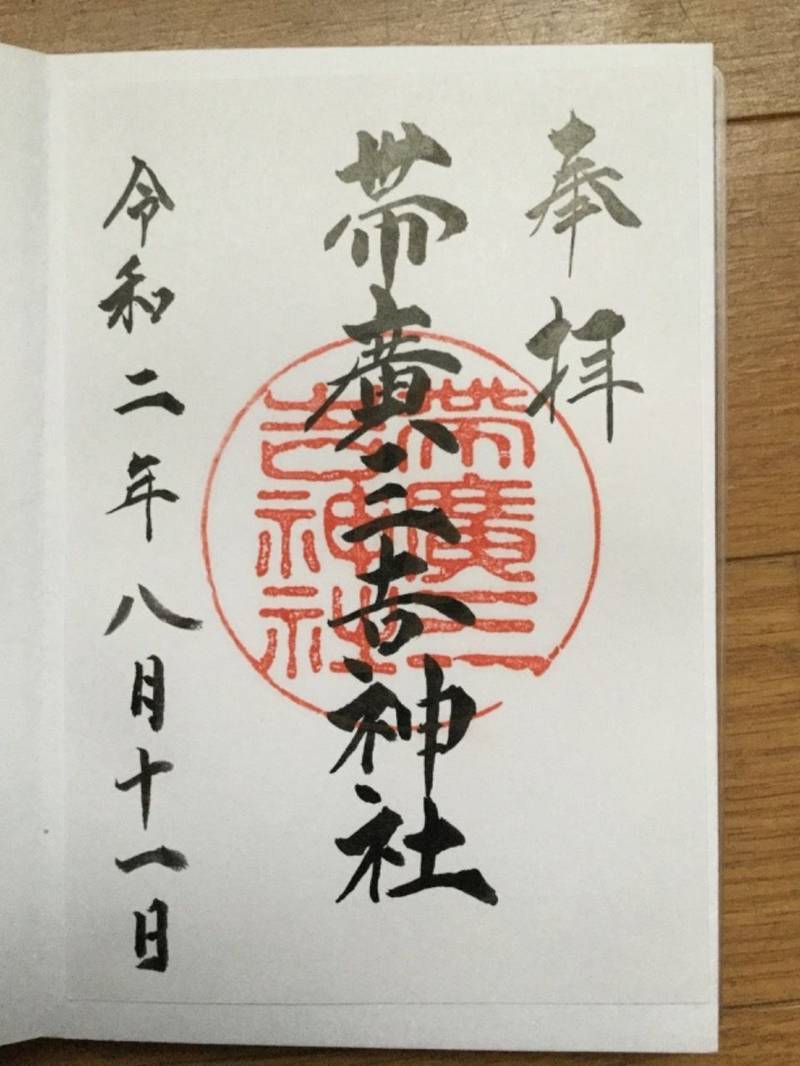 奉拝
帯廣三吉神社
帯廣三
吉神社
令和二年八月十一日